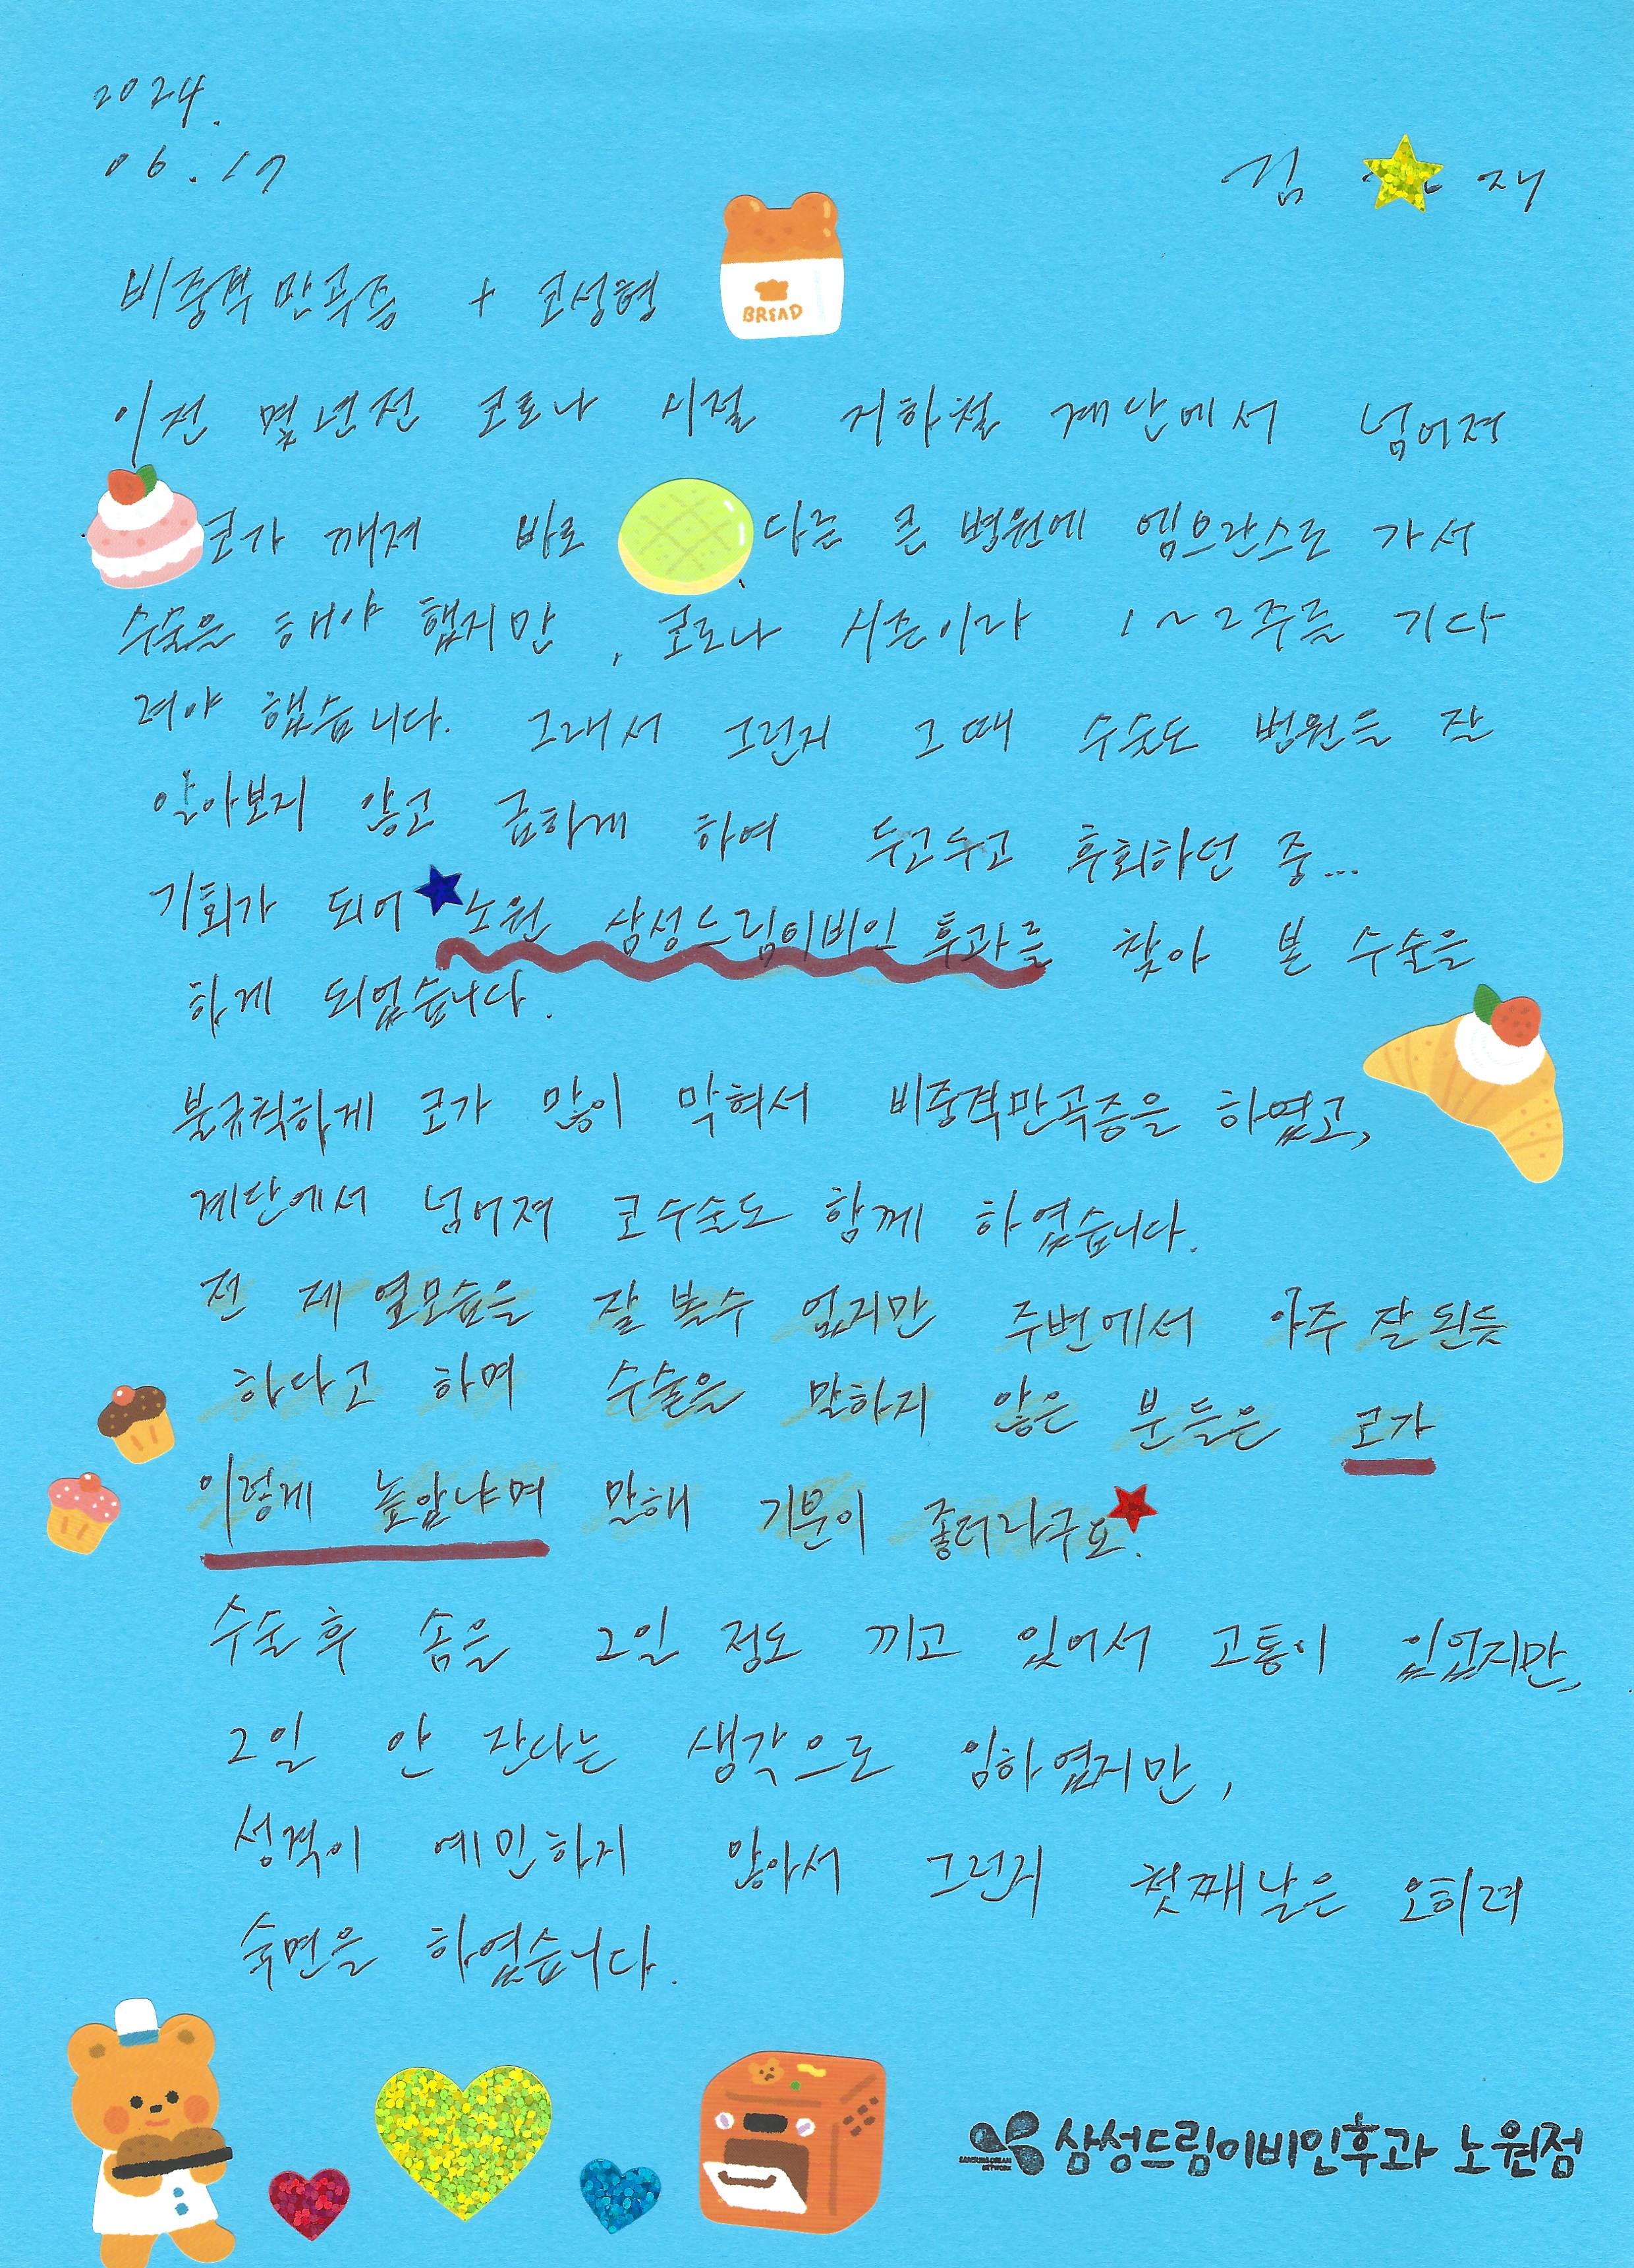 2024.
06.17
김 재
비중격만곡증 + 코성형
BREAD
이전 몇년전 코로나 시절 지하철 계단에서 넘어져
코가 깨져 바로 다른 큰 병원에 엠브란스로 가서
수술을 해야 했지만, 코로나 시즌이라 1~2주를 기다
려야 했습니다. 그래서 그런지 그 때 수술도 병원을 잘
알아보지 않고 급하게 하여 두고두고 후회하던 중...
기회가 되어 노원 삼성드림이비인후과를 찾아 본 수술을
하게 되었습니다.
불규칙하게 코가 많이 막혀서 비중격만곡증을 하였고,
계단에서 넘어져 코수술도 함께 하였습니다.
전 제 옆모습을 잘 볼수 없지만 주변에서 아주 잘된듯
하다고 하며 수술을 말하지 않은 분들은 코가
이렇게 높았냐며 말해 기분이 좋더라구요.
수술후 솜을 2일 정도 끼고 있어서 고통이 있었지만,
2일 안 잔다는 생각으로 임하였지만,
성격이 예민하지 않아서 그런지 첫째날은 오히려
숙면을 하였습니다.
삼성드림이비인후과 노원점